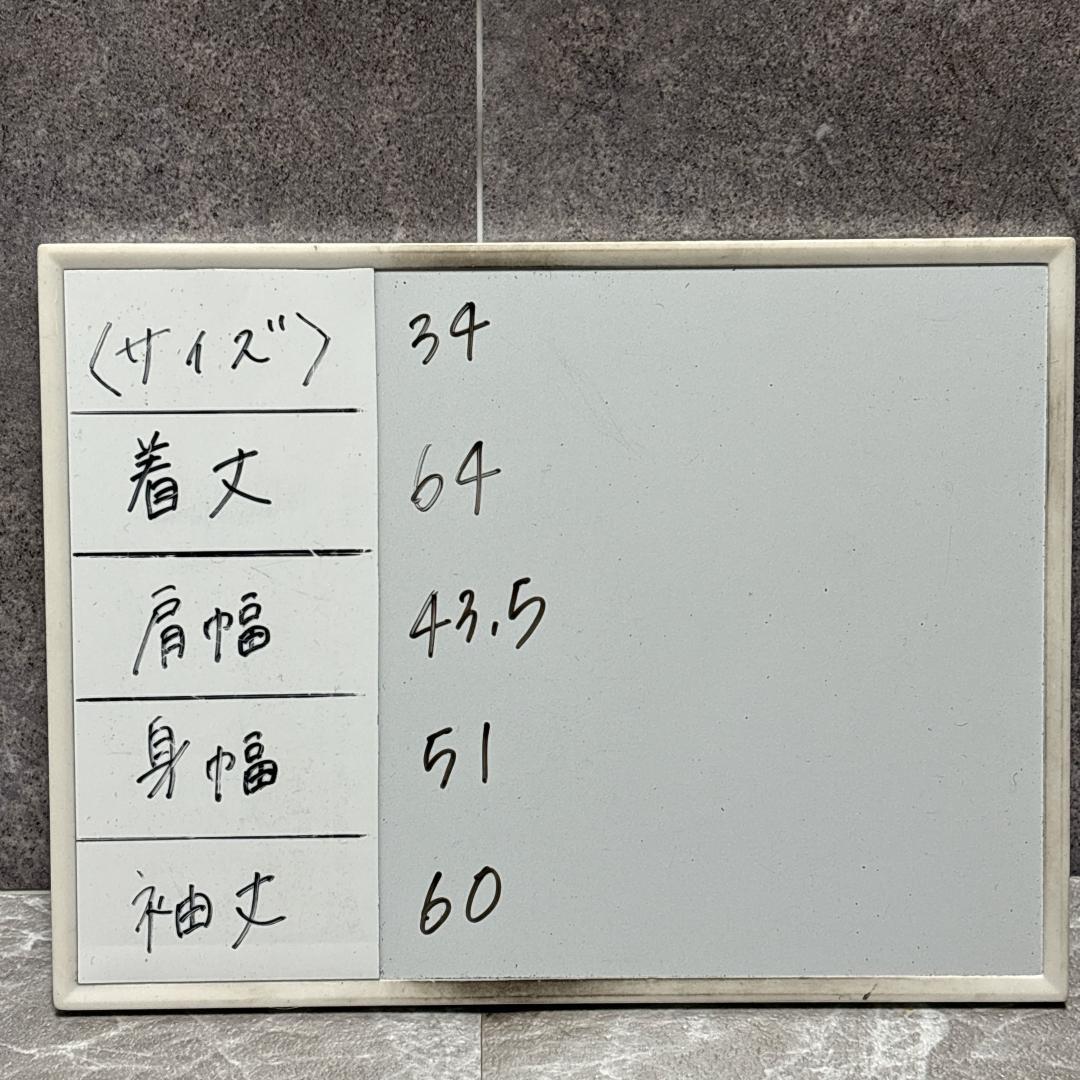 〈サイズ〉 34
着丈 64
肩幅 43.5
身幅 51
袖丈 60